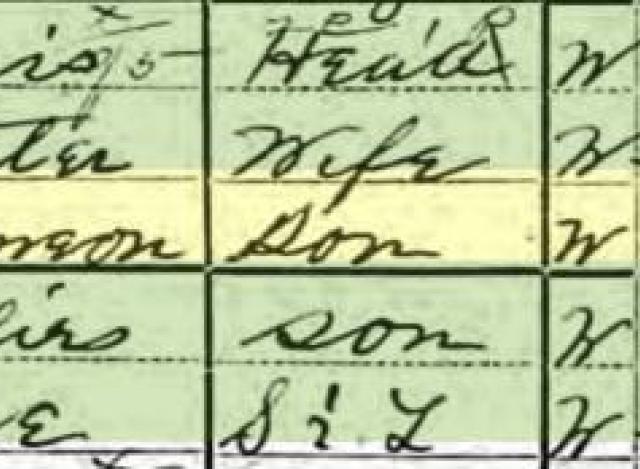 is Head W
ter Wife W
meon Son W
liers son W
e S i L W